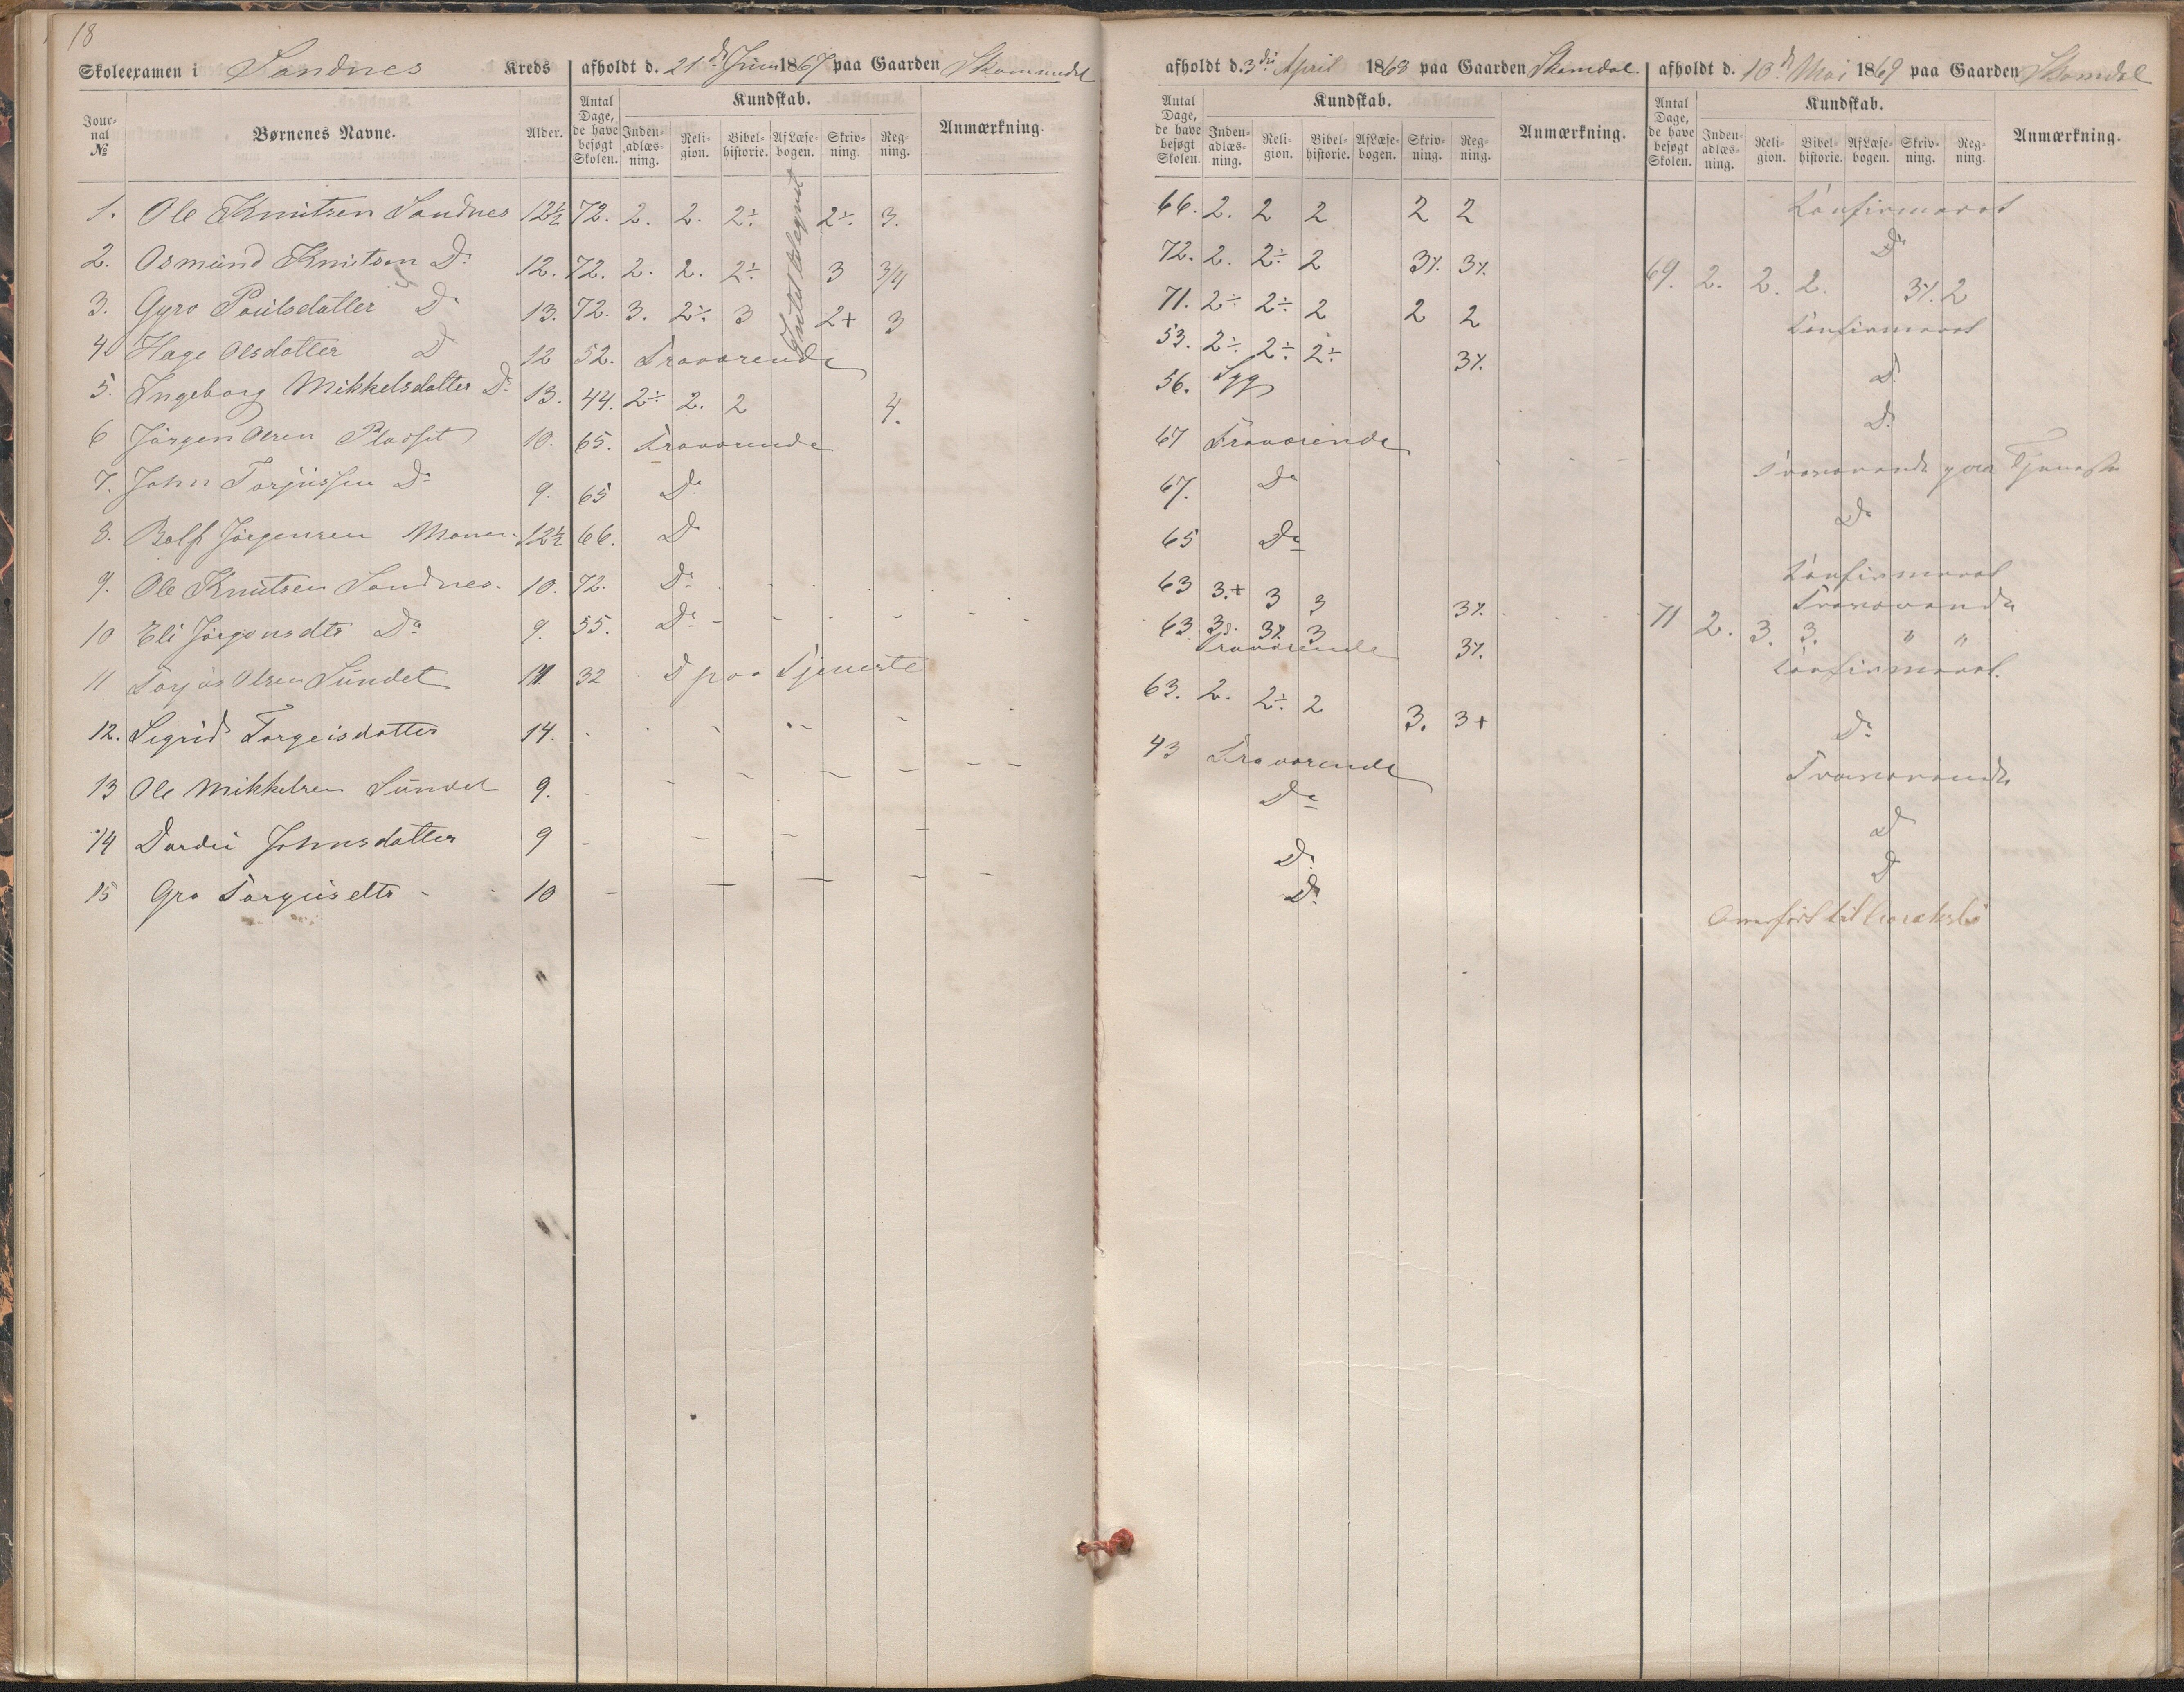 18
Skoleexamen i Sandnes Kreds afholdt d. 21de Juni 1867 paa Gaarden Skomedal
Journal № Børnenes Navne. Alder. Antal Dage, de have besøgt Skolen. Kundskab. Indenadlæsning. Religion. Bibelhistorie. Af Læsebogen. Skrivning. Regning. Anmærkning.
1. Ole Knutsen Sandnes 12½ 72. 2. 2. 2÷ 2÷. 3.
2. Osmund Knutson Do 12. 72. 2. 2. 2÷ 3 3/4
3. Gyro Paulsdatter Do 13. 72. 3. 2÷ 3 2+ 3
4 Hage Olsdatter D 12 52. Fraværende
5. Ingeborg Mikkelsdatter Do 13. 44. 2÷ 2. 2 4.
6 Jörgen Olsen 10. 65. Fraværende
7. John Torjussen Do 9. 65 Do
8. Rolf Jörgensen Moner 12½ 66. D
9. Ole Knutsen Sandnes. 10. 72. Do
10 Eli Jörgensdtr Do 9. 55. Do
11 Torjus Olsen Sundet 11 32 D paa Tjeneste
12. Sigrid Torgeisdatter 14.
13 Ole Mikkelsen Sundet 9.
14 Dordei Johnsdatter 9
15 Gro Torgusdtr 10
afholdt d. 3die April 1868 paa Gaarden Skomdal.
Antal Dage, de have besøgt Skolen. Kundskab. Indenadlæsning. Religion. Bibelhistorie. Af Læsebogen. Skrivning. Regning. Anmærkning.
66. 2. 2 2 2 2
72. 2. 2÷ 2 3% 3%
71. 2÷ 2÷ 2 2 2
53. 2÷ 2÷ 2÷ 3%.
56. Syg
67 Fraværende
67. Do
65 Do
63 3.+ 3 3 3%
63. 3 3% 3 3%.
Fraværende
63. 2. 2÷ 2 3. 3+
43 Fraværende
Do
Do
Do
afholdt d. 10d Mai 1869 paa Gaarden Skomdal
Antal Dage, de have besøgt Skolen. Kundskab. Indenadlæsning. Religion. Bibelhistorie. Af Læsebogen. Skrivning. Regning. Anmærkning.
Konfirmeret
Do
69. 2. 2. 2. 3%. 2
Konfirmeret
Do
Do
Fraværende paa Tjeneste
Do
Konfirmeret
Fraværende
71 2. 3. 3. " "
Konfirmeret.
Do
Fraværende
D
D
Overfört til